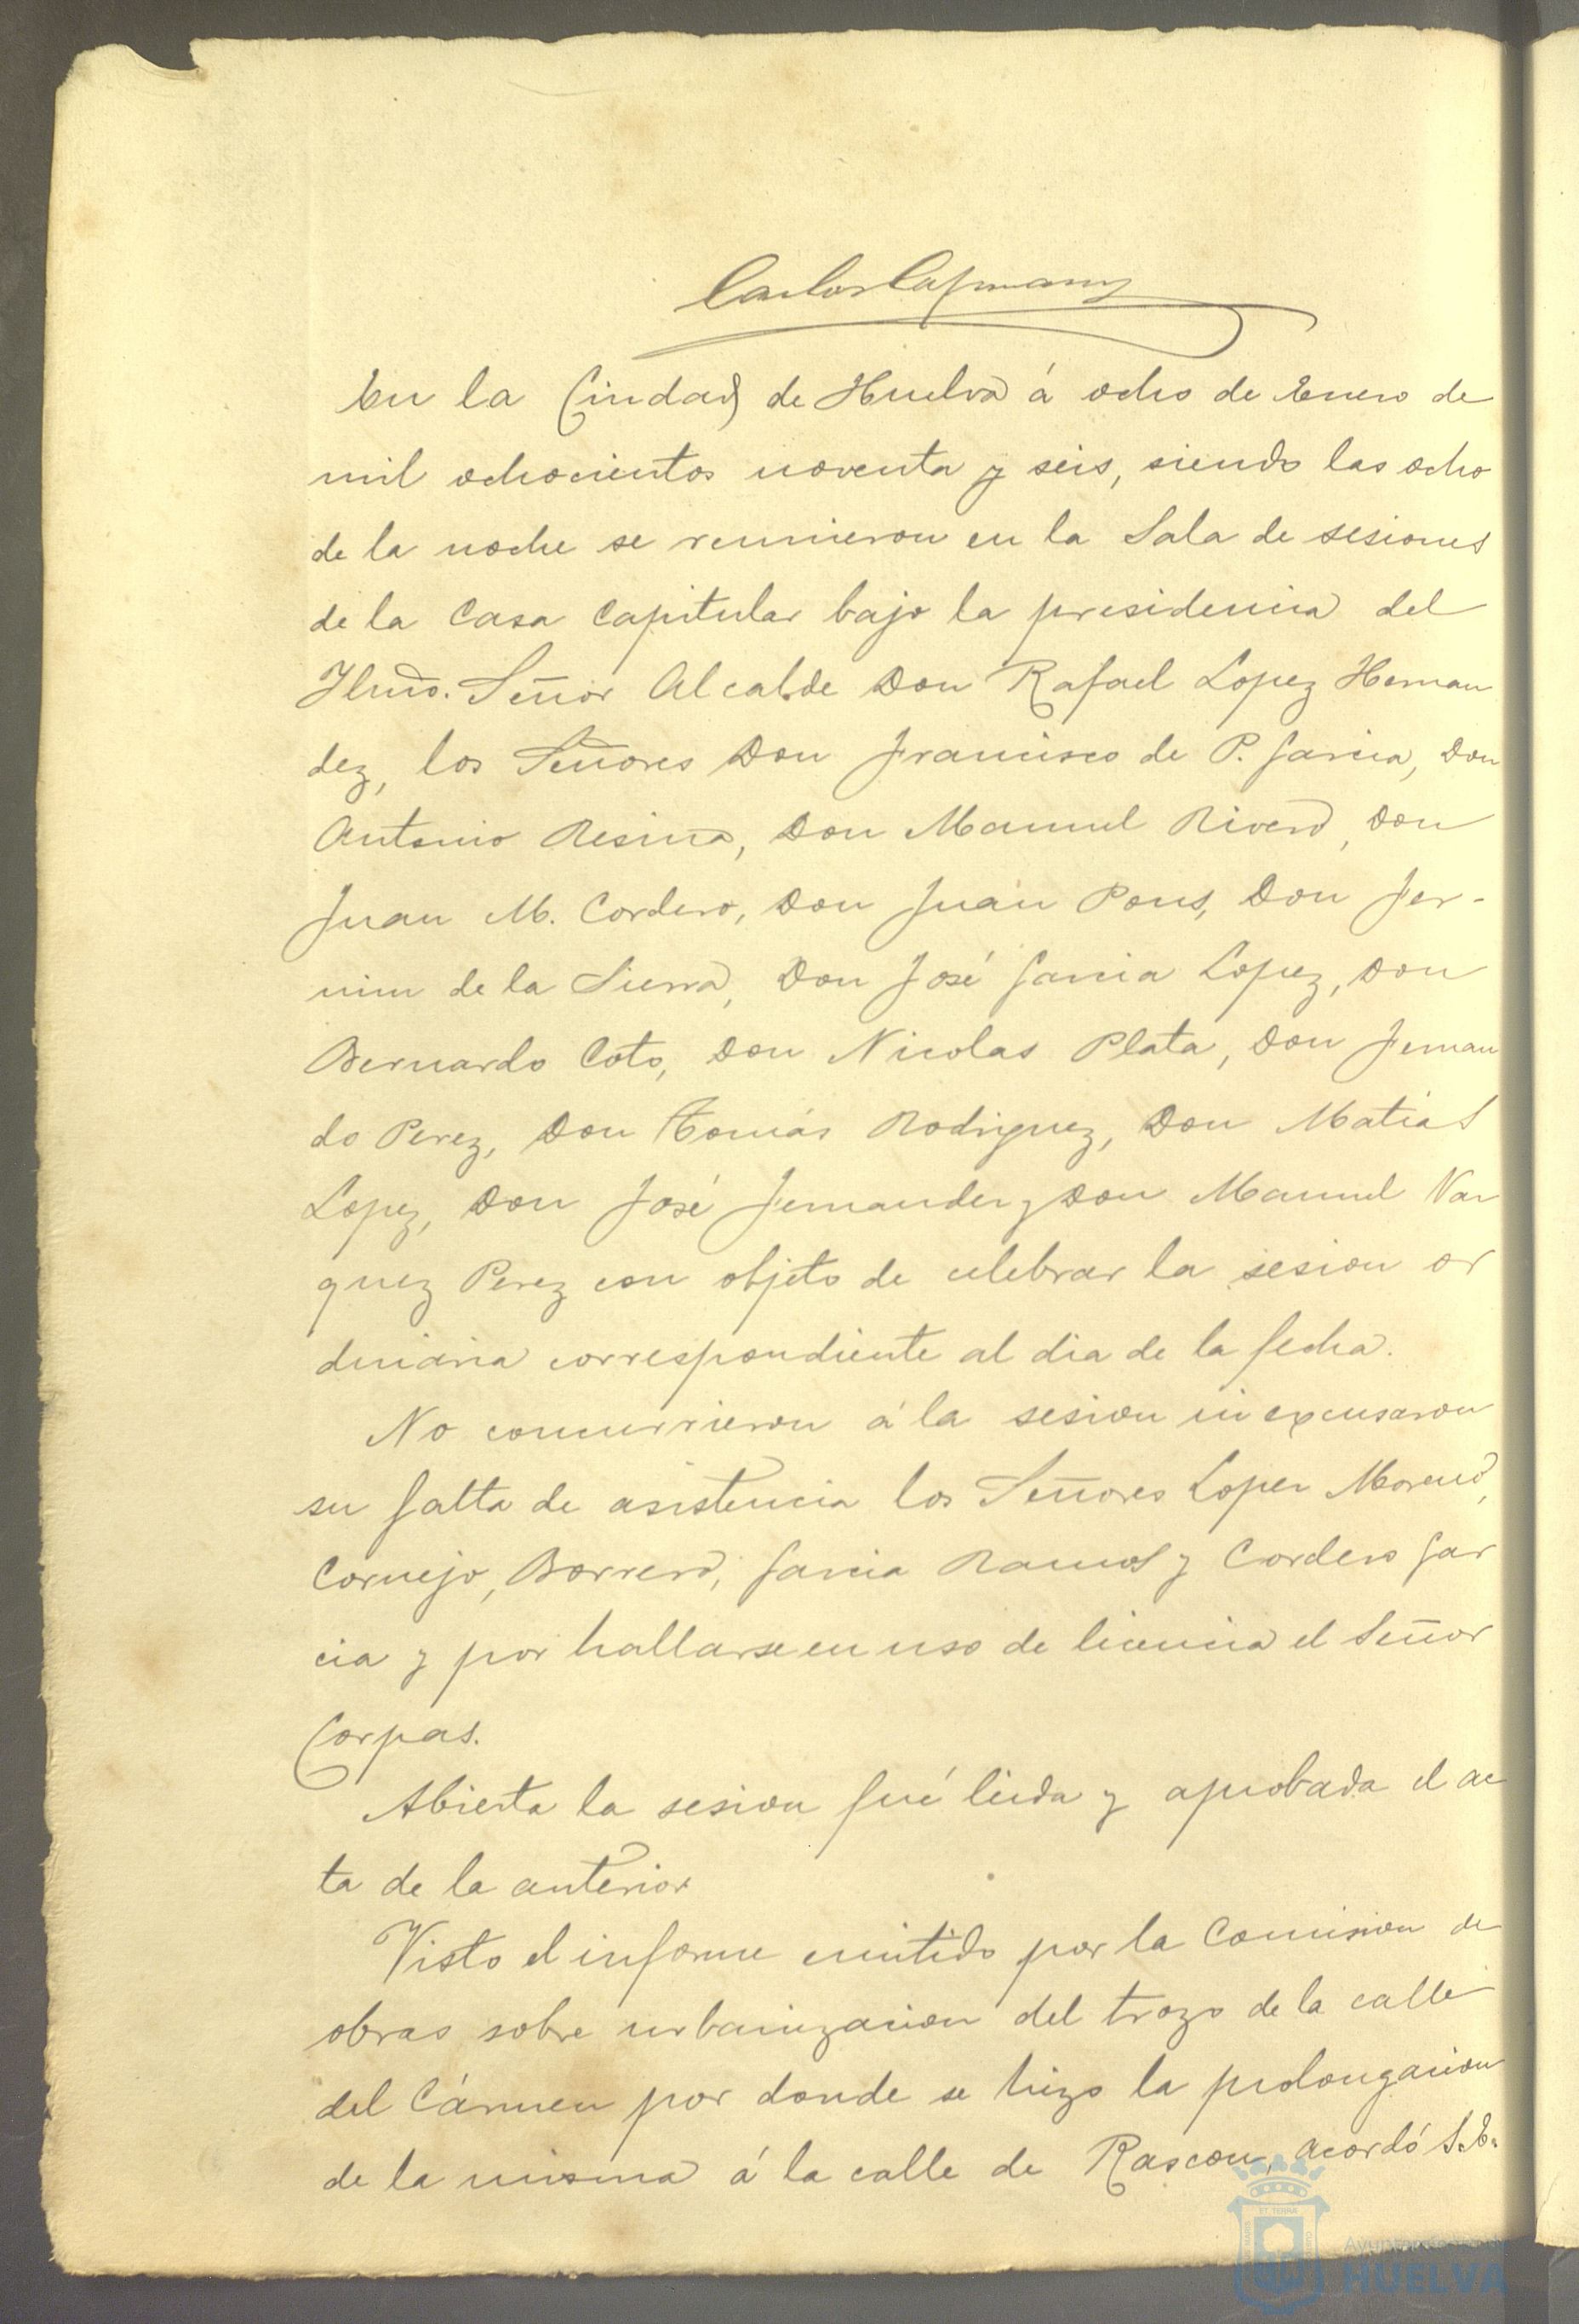 Carlos Capmany
En la Ciudad de Huelva á ocho de Enero de
mil ochocientos noventa y seis, siendo las ocho
de la noche se reunieron en la Sala de sesiones
de la Casa Capitular bajo la presidencia del
Ylmo. Señor Alcalde Don Rafael Lopez Hernan
dez, los Señores Don Francisco de P. Garcia, Don
Antonio Resina, Don Manuel Rivero, Don
Juan M. Cordero, Don Juan Pons, Don Fer-
min de la Sierra, Don José Garcia Lopez, Don
Bernardo Coto, Don Nicolas Plata, Don Fernan
do Perez, Don Tomás Rodriguez, Don Matias
Lopez, Don José Fernandez y Don Manuel Vaz
quez Perez con objeto de celebrar la sesion or
dinaria correspondiente al dia de la fecha.
No concurrieron á la sesion ni excusaron
su falta de asistencia los Señores Lopez Moreno,
Cornejo, Borrero, Garcia Ramos y Cordero Gar
cia y por hallarse en uso de licencia el Señor
Corpas.
Abierta la sesion fué leida y aprobada el ac
ta de la anterior
Visto el informe emitido por la Comision de
obras sobre urbanizacion del trozo de la calle
del Cármen por donde se hizo la prolongacion
de la misma á la calle de Rascon, acordó S.E.
Ayuntamiento
HUELVA